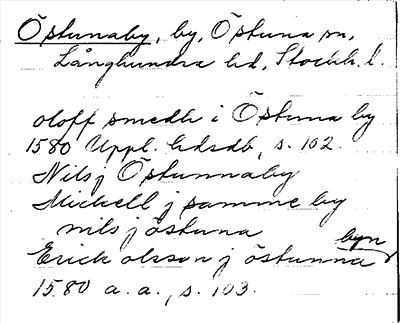 Östunaby, by, Östuna sn,
Långhundra hd, Stockh. l.
oloff smedh i Östuna by
1580 Uppl. hdsdb, s. 102.
Nils j Östunnaby
Mickell j samme by
nils j östuna
Erick olsson j östunna byn
1580 a. a., s. 103.